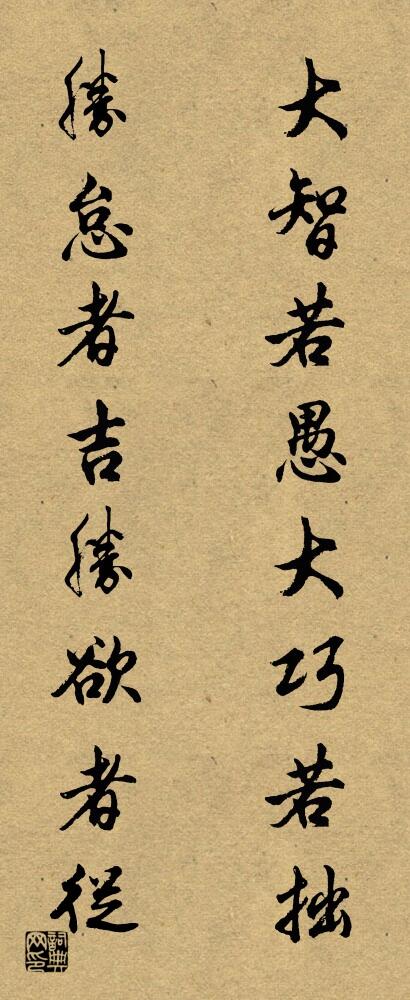 大智若愚大巧若拙
勝怠者吉勝欲者從
詞典網印